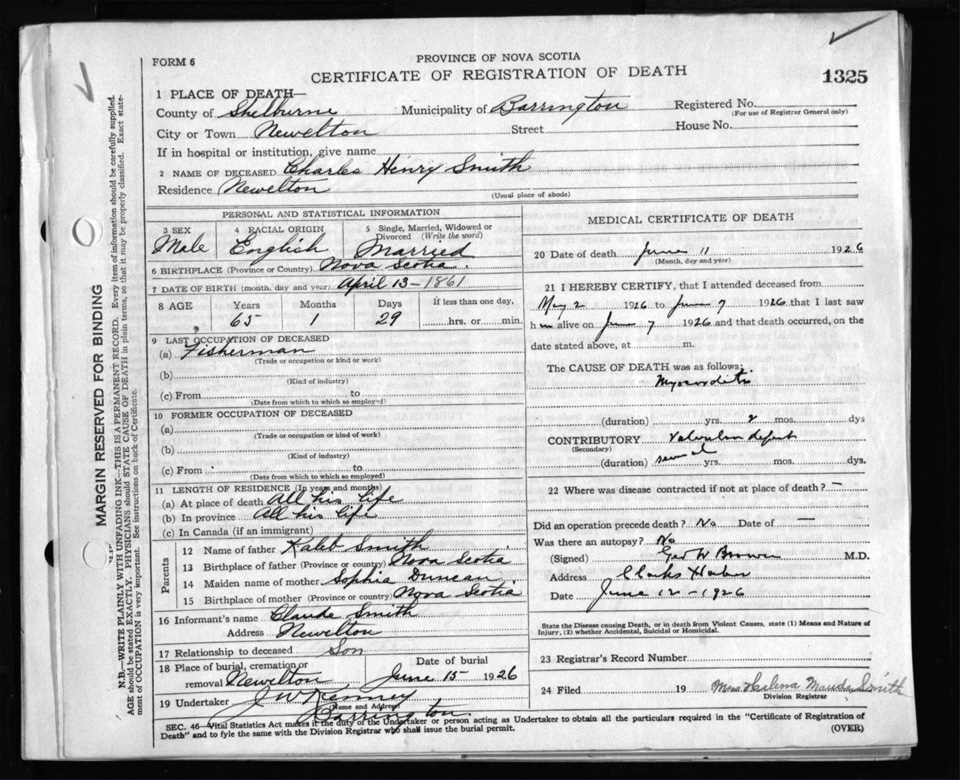 FORM 6
PROVINCE OF NOVA SCOTIA
CERTIFICATE OF REGISTRATION OF DEATH
1325
1 PLACE OF DEATH
County of Shelburne Municipality of Barrington Registered No.
(For use of Registrar General only)
City or Town Newelton Street House No.
If in hospital or institution, give name
2 NAME OF DECEASED Charles Henry Smith
Residence Newelton
(Usual place of abode)
PERSONAL AND STATISTICAL INFORMATION
3 SEX 4 RACIAL ORIGIN 5 Single, Married, Widowed or Divorced (Write the word)
Male English Married
6 BIRTHPLACE (Province or Country) Nova Scotia.
7 DATE OF BIRTH (month, day and year) April 13-1861
8 AGE Years Months Days If less than one day,
65 1 29 hrs. or min.
9 LAST OCCUPATION OF DECEASED
(a) Fisherman
(Trade or occupation or kind or work)
(b)
(Kind of industry)
(c) From to
(Date from which to which so employed)
10 FORMER OCCUPATION OF DECEASED
(a)
(Trade or occupation or kind of work)
(b)
(Kind of industry)
(c) From to
(Date from which to which so employed)
11 LENGTH OF RESIDENCE (In years and months)
(a) At place of death All his life
(b) In province All his life
(c) In Canada (if an immigrant)
Parents
12 Name of father Kaleb Smith
13 Birthplace of father (Province or country) Nova Scotia
14 Maiden name of mother Sophia Duncan
15 Birthplace of mother (Province or country) Nova Scotia
16 Informant's name Claude Smith
Address Newelton
17 Relationship to deceased Son
18 Place of burial, cremation or removal Newelton Date of burial June 15-1926
19 Undertaker J W Kenney
(Name and Address)
Barrington
MEDICAL CERTIFICATE OF DEATH
20 Date of death June 11 1926
(Month, day and year)
21 I HEREBY CERTIFY, that I attended deceased from
May 2 1926 to June 7 1926 that I last saw
him alive on June 7 1926 and that death occurred, on the
date stated above, at m.
The CAUSE OF DEATH was as follows:
Myocarditis
(duration) yrs. 2 mos. dys
CONTRIBUTORY Valvular defect
(Secondary)
(duration) several yrs. mos. dys.
22 Where was disease contracted if not at place of death? —
Did an operation precede death? No Date of —
Was there an autopsy? No
(Signed) Geo W Brown M.D.
Address Clarks Harbor
Date June 12-1926
State the Disease causing Death, or in death from Violent Causes, state (1) Means and Nature of
Injury, (2) whether Accidental, Suicidal or Homicidal.
23 Registrar's Record Number
24 Filed 19 Mrs Maude Smith
Division Registrar
SEC. 46 Vital Statistics Act makes it the duty of the Undertaker or person acting as Undertaker to obtain all the particulars required in the "Certificate of Registration of
Death" and to fyle the same with the Division Registrar who shall issue the burial permit. (OVER)
MARGIN RESERVED FOR BINDING
N.B.—WRITE PLAINLY WITH UNFADING INK—THIS IS A PERMANENT RECORD. Every item of information should be carefully supplied.
AGE should be stated EXACTLY. PHYSICIANS should STATE CAUSE OF DEATH in plain terms, so that it may be properly classified. Exact state-
ment of OCCUPATION is very important. See instructions on back of Certificate.